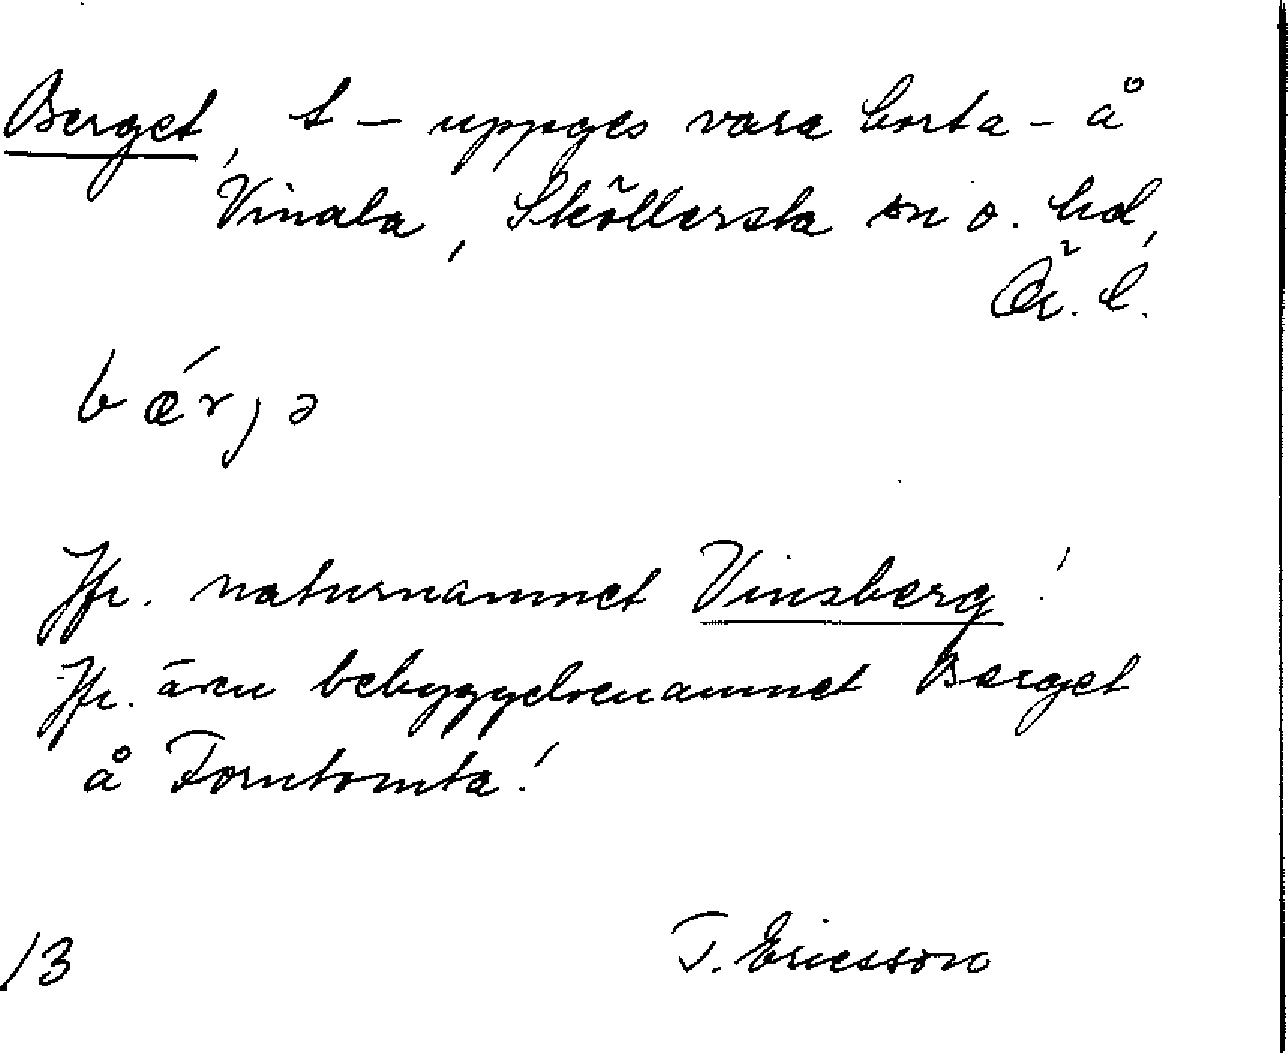 Berget, t – uppges vara borta – å
Vinala, Sköllersta sn o. hd,
Ör. l.
bǽrjə
Jfr. naturnamnet Vinsberg!
Jfr. även bebyggelsenamnet Berget
å Forntomta!
/3
T. Ericsson